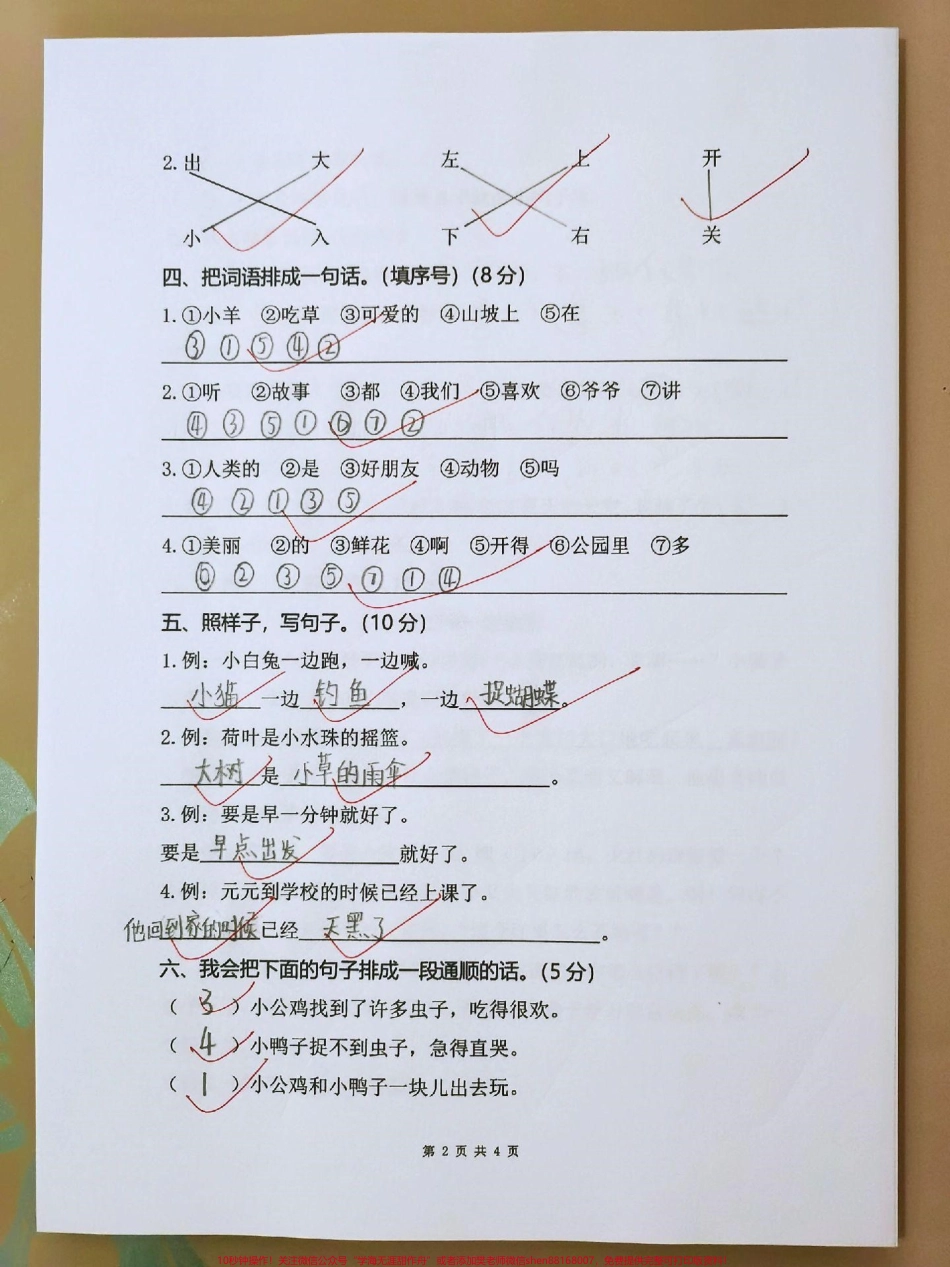 2.出 大 左 上 开
小 入 下 右 关
四、把词语排成一句话。(填序号)(8分)
1.①小羊 ②吃草 ③可爱的 ④山坡上 ⑤在
③ ① ⑤ ④ ②
2.①听 ②故事 ③都 ④我们 ⑤喜欢 ⑥爷爷 ⑦讲
④ ③ ⑤ ① ⑥ ⑦ ②
3.①人类的 ②是 ③好朋友 ④动物 ⑤吗
④ ② ① ③ ⑤
4.①美丽 ②的 ③鲜花 ④啊 ⑤开得 ⑥公园里 ⑦多
⑥ ② ③ ⑤ ⑦ ① ④
五、照样子，写句子。(10分)
1.例：小白兔一边跑，一边喊。
小猫一边钓鱼，一边捉蝴蝶。
2.例：荷叶是小水珠的摇篮。
大树是小草的雨伞。
3.例：要是早一分钟就好了。
要是早点出发就好了。
4.例：元元到学校的时候已经上课了。
他回到家的时候已经天黑了。
六、我会把下面的句子排成一段通顺的话。(5分)
（3）小公鸡找到了许多虫子，吃得很欢。
（4）小鸭子捉不到虫子，急得直哭。
（1）小公鸡和小鸭子一块儿出去玩。
第 2 页 共 4 页